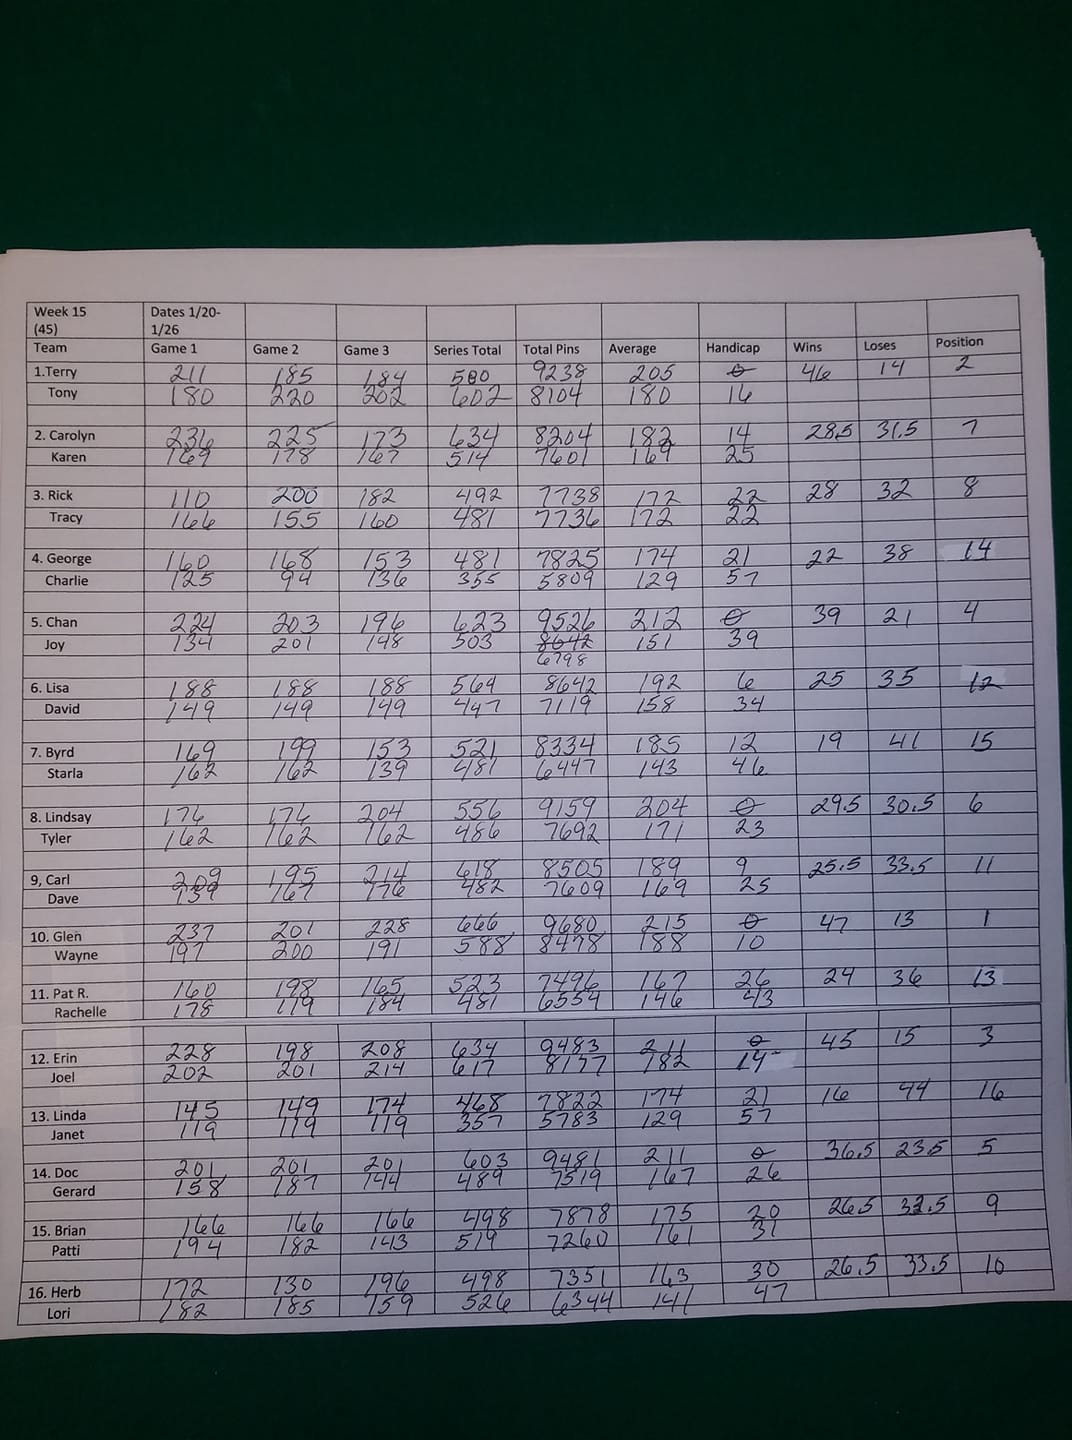 Week 15 (45) Dates 1/20-1/26
Team Game 1 Game 2 Game 3 Series Total Total Pins Average Handicap Wins Loses Position
1.Terry 211 185 184 580 9238 205 0 46 14 2
Tony 180 220 202 602 8104 180 16
2. Carolyn 236 225 173 634 8204 182 14 28.5 31.5 7
Karen 169 178 167 514 7601 169 25
3. Rick 110 200 182 492 7738 172 22 28 32 8
Tracy 166 155 160 481 7736 172 22
4. George 160 168 153 481 7825 174 21 22 38 14
Charlie 125 94 136 355 5809 129 57
5. Chan 224 203 196 623 9526 212 0 39 21 4
Joy 134 201 148 503 8642 151 39
6798
6. Lisa 188 188 188 564 8642 192 6 25 35 12
David 149 149 149 447 7119 158 34
7. Byrd 169 199 153 521 8334 185 12 19 41 15
Starla 162 162 139 481 6447 143 46
8. Lindsay 176 176 204 556 9159 204 0 29.5 30.5 6
Tyler 162 162 162 486 7692 171 23
9, Carl 209 195 214 618 8505 189 9 25.5 33.5 11
Dave 139 167 176 482 7609 169 25
10. Glen 237 201 228 666 9680 215 0 47 13 1
Wayne 197 200 191 588 8478 188 10
11. Pat R. 160 198 165 523 7496 167 26 24 36 13
Rachelle 178 119 184 481 6554 146 43
12. Erin 228 198 208 634 9483 211 0 45 15 3
Joel 202 201 214 617 8177 182 14
13. Linda 145 149 174 468 7822 174 21 16 44 16
Janet 119 119 119 357 5783 129 57
14. Doc 201 201 201 603 9481 211 0 36.5 23.5 5
Gerard 158 187 144 489 7519 167 26
15. Brian 166 166 166 498 7878 175 20 26.5 33.5 9
Patti 194 182 143 519 7260 161 31
16. Herb 172 130 196 498 7351 163 30 26.5 33.5 10
Lori 182 185 159 526 6344 141 47